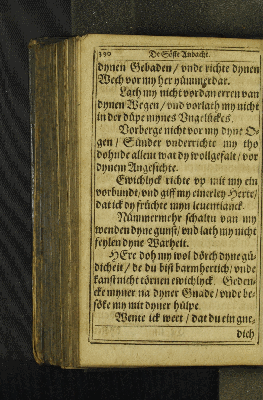 De Söste Andacht.
dynen Gebaden / vnde richte dynen
Wech vor my her nümmerdar.
Lath my nicht vordan erren van
dynen Wegen / vnd vorlath my nicht
in der düpe mynes Vngelückes.
Vorberge nicht vor my dyne O-
gen / Sünder vnderrichte my tho
dohnde allent wat dy wollgefalt / vor
dynem Angesichte.
Ewichlyck richte vp mit my ein
vorbundt, vnd giff my einerley Herte/
dat ick dy früchte myn leuent lanck.
Nümmermehr schaltu van my
wenden dyne gunst / vnd lath my nicht
feylen dyne Warheit.
HEre doh my wol dörch dyne gü-
dicheit / de du bist barmhertich / vnde
kanst nicht törnen ewichlyck. Geden-
cke myner na dyner Gnade / vnde be-
söke my mit dyner hülpe.
Wente ick weet / dat du ein gne-
dich